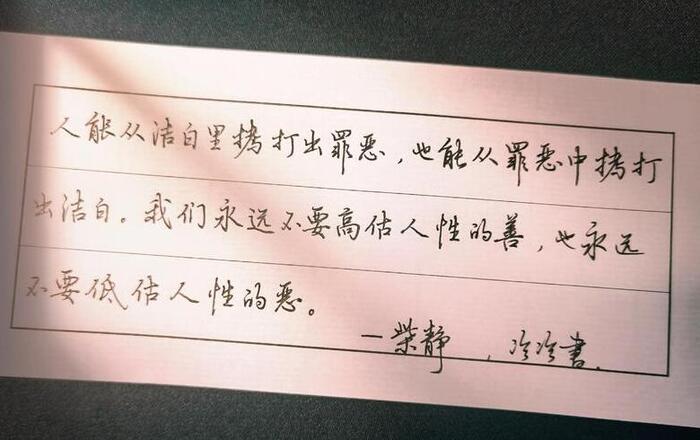 人能从洁白里拷打出罪恶，也能从罪恶中拷打
出洁白。我们永远不要高估人性的善，也永远
不要低估人性的恶。
—柴静 ，冷冷書.